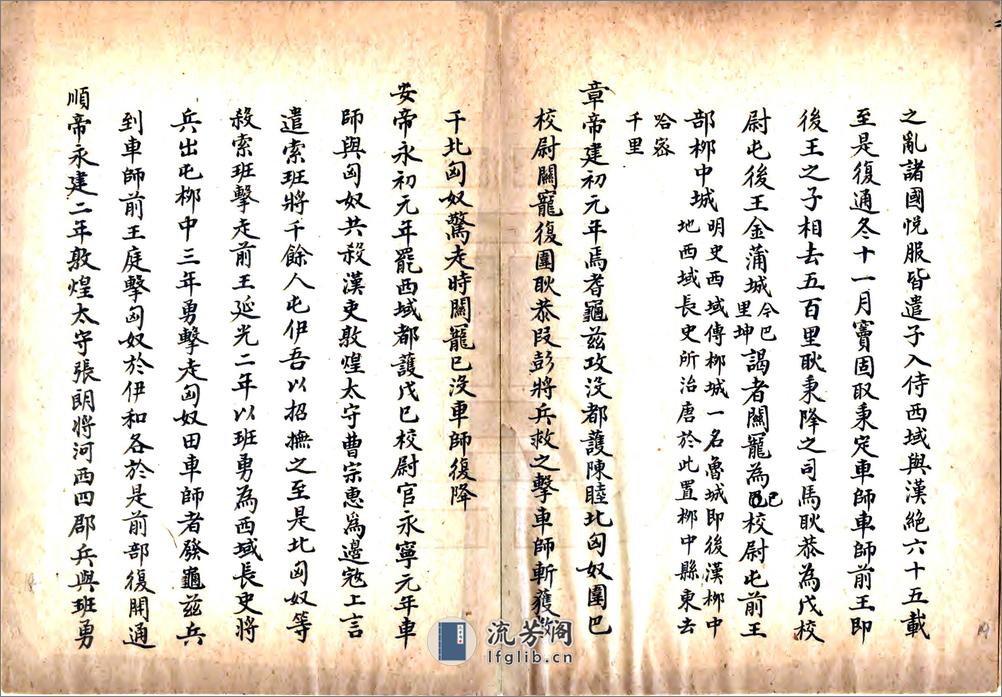 之亂諸國悅服皆遣子入侍西域與漢絕六十五載
至是復通冬十一月竇固耿秉定車師車師前王即
後王之子相去五百里耿秉降之司馬耿恭為戊校
尉屯後王金蒲城今巴里坤謁者關寵為己校尉屯前王
部柳中城明史西域傳柳城一名魯城即後漢柳中
地西域長史所治唐於此置柳中縣東去
哈密
千里
章帝建初元年焉耆龜茲攻沒都護陳睦北匈奴圍巳
校尉關寵復圍耿恭段彭將兵救之擊車師斬獲數
千北匈奴驚走時關寵巳沒車師復降
安帝永初元年罷西域都護戊巳校尉官永寧元年車
師與匈奴共殺漢吏敦煌太守曹宗患為邊寇上言
遣索班將千餘人屯伊吾以招撫之至是北匈奴等
殺索班擊走前王延光二年以班勇為西域長史將
兵出屯柳中三年勇擊走匈奴田車師者發龜茲兵
到車師前王庭擊匈奴於伊和各於是前部復開通
順帝永建二年敦煌太守張朗將河西四郡兵與班勇
流芳閣
lfglib.cn